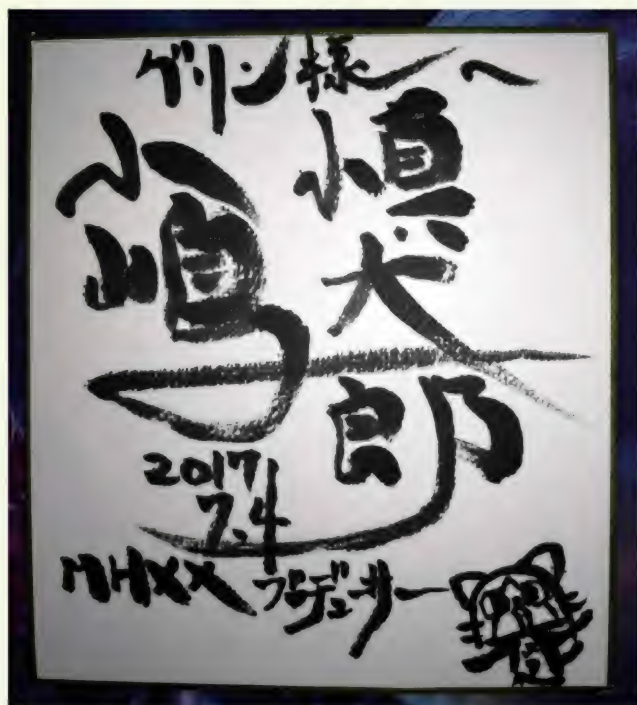 ゲリン様へ
小嶋
慎太郎
2017
7.4
MHXX プロデューサー